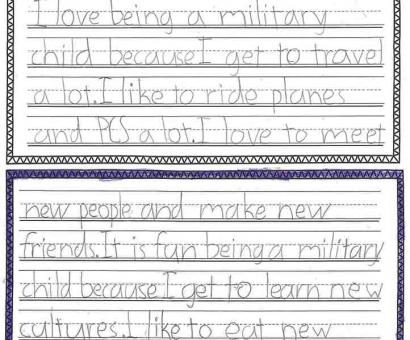 I love being a military
child because I get to travel
a lot. I like to ride planes
and PCS a lot. I love to meet
new people and make new
friends. It is fun being a military
child because I get to learn new
cultures. I like to eat new